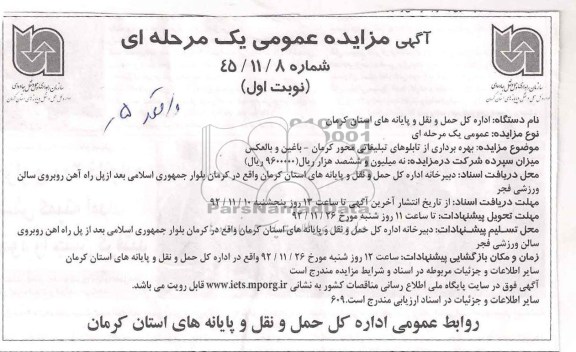 آگهی مزایده عمومی یک مرحله ای
شماره ٨ / ١١ / ٤٥
(نوبت اول)
نام دستگاه: اداره کل حمل و نقل و پایانه های استان کرمان
نوع مزایده: عمومی یک مرحله ای
موضوع مزایده: بهره برداری از تابلوهای تبلیغاتی محور کرمان - باغین و بالعکس
میزان سپرده شرکت درمزایده: نه میلیون و ششصد هزار ریال(٩٦٠٠٠٠٠ ریال)
محل دریافت اسناد: دبیرخانه اداره کل حمل و نقل و پایانه های استان کرمان واقع در کرمان بلوار جمهوری اسلامی بعد ازپل راه آهن روبروی سالن
ورزشی فجر
مهلت دریافت اسناد: از تاریخ انتشار آخرین آگهی تا ساعت ١٣ روز پنجشنبه ١٠ / ١١ / ٩٢
مهلت تحویل پیشنهادات: تا ساعت ١١ روز شنبه مورخ ٢٦ / ١١ / ٩٢
محل تسلیم پیشنهادات: دبیرخانه اداره کل حمل و نقل و پایانه های استان کرمان واقع در کرمان بلوار جمهوری اسلامی بعد از پل راه آهن روبروی
سالن ورزشی فجر
زمان و مکان بازگشایی پیشنهادات: ساعت ١٢ روز شنبه مورخ ٢٦ / ١١ / ٩٢ واقع در اداره کل حمل و نقل و پایانه های استان کرمان
سایر اطلاعات و جزئیات مربوطه در اسناد و شرایط مزایده مندرج است
آگهی فوق در سایت پایگاه ملی اطلاع رسانی مناقصات کشور به نشانی www.iets.mporg.ir قابل رویت می باشد.
سایر اطلاعات و جزئیات در اسناد ارزیابی مندرج است.٦٠٩
روابط عمومی اداره کل حمل و نقل و پایانه های استان کرمان
ParsNamadData